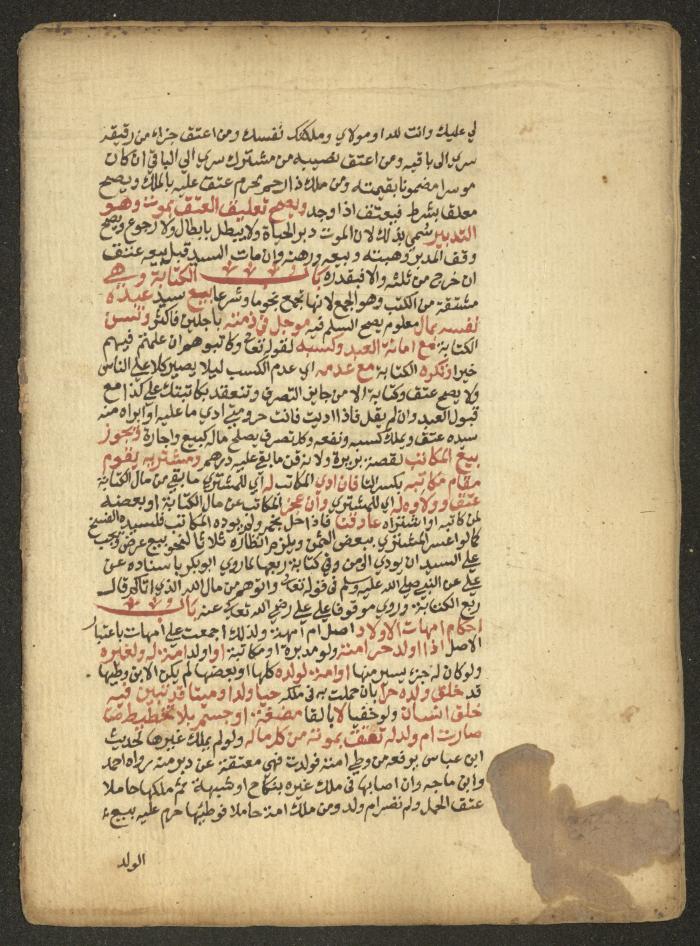 لي عليك وانت لله او مولاي وملكتك نفسك ومن اعتق جزاء من رقيقه
سرى الى باقيه ومن اعتق نصيبه من مشترك سرى الى الباقي ان كان
موسرا مضمونا بقيمته ومن ملك ذا رحم محرم عتق عليه بالملك ويصح
معلقا بشرط فيعتق اذا وجد ويصح تعليق العتق بموت وهو
التدبير سمي بذلك لان الموت دبر الحياة ولا يبطل بابطال ولا رجوع ويصح
وقف المدبر وهبته وبيعه ورهنه وان مات السيد قبل بيعه عتق
ان خرج من ثلثه والا فبقدره باب الكتابة وهي
مشتقة من الكتب وهو الجمع لانها تجمع نجوما وشرعا بيع سيد عبده
نفسه بمال معلوم يصح السلم فيه موجل في ذمته باجلين فاكثر وتسن
الكتابة مع امانة العبد وكسبه لقوله تعالى وكاتبوهم ان علمتم فيهم
خيرا وتكره الكتابة مع عدمه اي عدم الكسب ليلا يصير كلا على الناس
ولا يصح عتق وكتابة الا من جايز التصرف وتنعقد بكاتبتك على كذا مع
قبول العبد وان لم يقل فاذا اديت فانت حر ومتى ادى ما عليه او ابراه منه
سيده عتق ويملك كسبه ونفعه وكل تصرف يصلح ماله كبيع واجارة ويجوز
بيع المكاتب لقصة بريرة ولانه قن ما بقي عليه درهم ومشتريه يقوم
مقام مكاتبه بكسر التا فان ادى المكاتب له اي للمشتري ما بقي من مال الكتابة
عتق وولاوه له اي للمشتري وان عجز المكاتب عن مال الكتابة او بعضه
لمن كاتبه او اشتراه عاد قنا فاذا حل نجم ولم يوده المكاتب فلسيده الفسخ
كما لو اعسر المشتري ببعض الثمن ويلزم انظاره ثلاثا لنحو بيع عرض ويجب
على السيد ان يودي الى من وفى كتابة ربعها لما روى ابو بكر باسناده عن
علي عن النبي صلى الله عليه وسلم في قوله تعالى واتوهم من مال الله الذي اتاكم قال
ربع الكتابة وروي موقوفا على علي رضي الله تعالى عنه باب
احكام امهات الاولاد اصل ام امهة ولذلك اجمعت على امهات باعتبار
الاصل اذا اولد حر امته ولو مدبرة او مكاتبة او اولد امة له ولغيره
ولو كان له جزء يسير منها او امة لولده كلها او بعضها لم يكن الابن وطيها
قد خلق ولده حرا بان حملت به في ملكه حيا ولد او ميتا قد تبين فيه
خلق انسان ولو خفيا لا بالقا مضغة او جسم بلا تخطيط
صارت ام ولد له تعتق بموته من كل ماله ولو لم يملك غيرها لحديث
ابن عباس يرفعه من وطي امته فولدت فهي معتقة عن دبر منه رواه احمد
وابن ماجه وان اصابها في ملك غيره بنكاح او شبهة ثم ملكها حاملا
عتق الحمل ولم تصر ام ولد ومن ملك امة حاملا فوطيها حرم عليه بيع
الولد